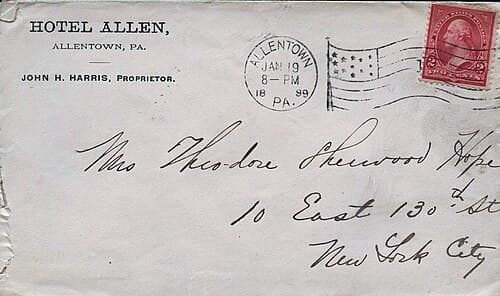 HOTEL ALLEN,
ALLENTOWN, PA.
JOHN H. HARRIS, PROPRIETOR.
ALLENTOWN
JAN 19
8-PM
1899
PA.
2 2
TWO CENTS
Mrs Theodore Sherwood Hope
10 East 130th St
New York City